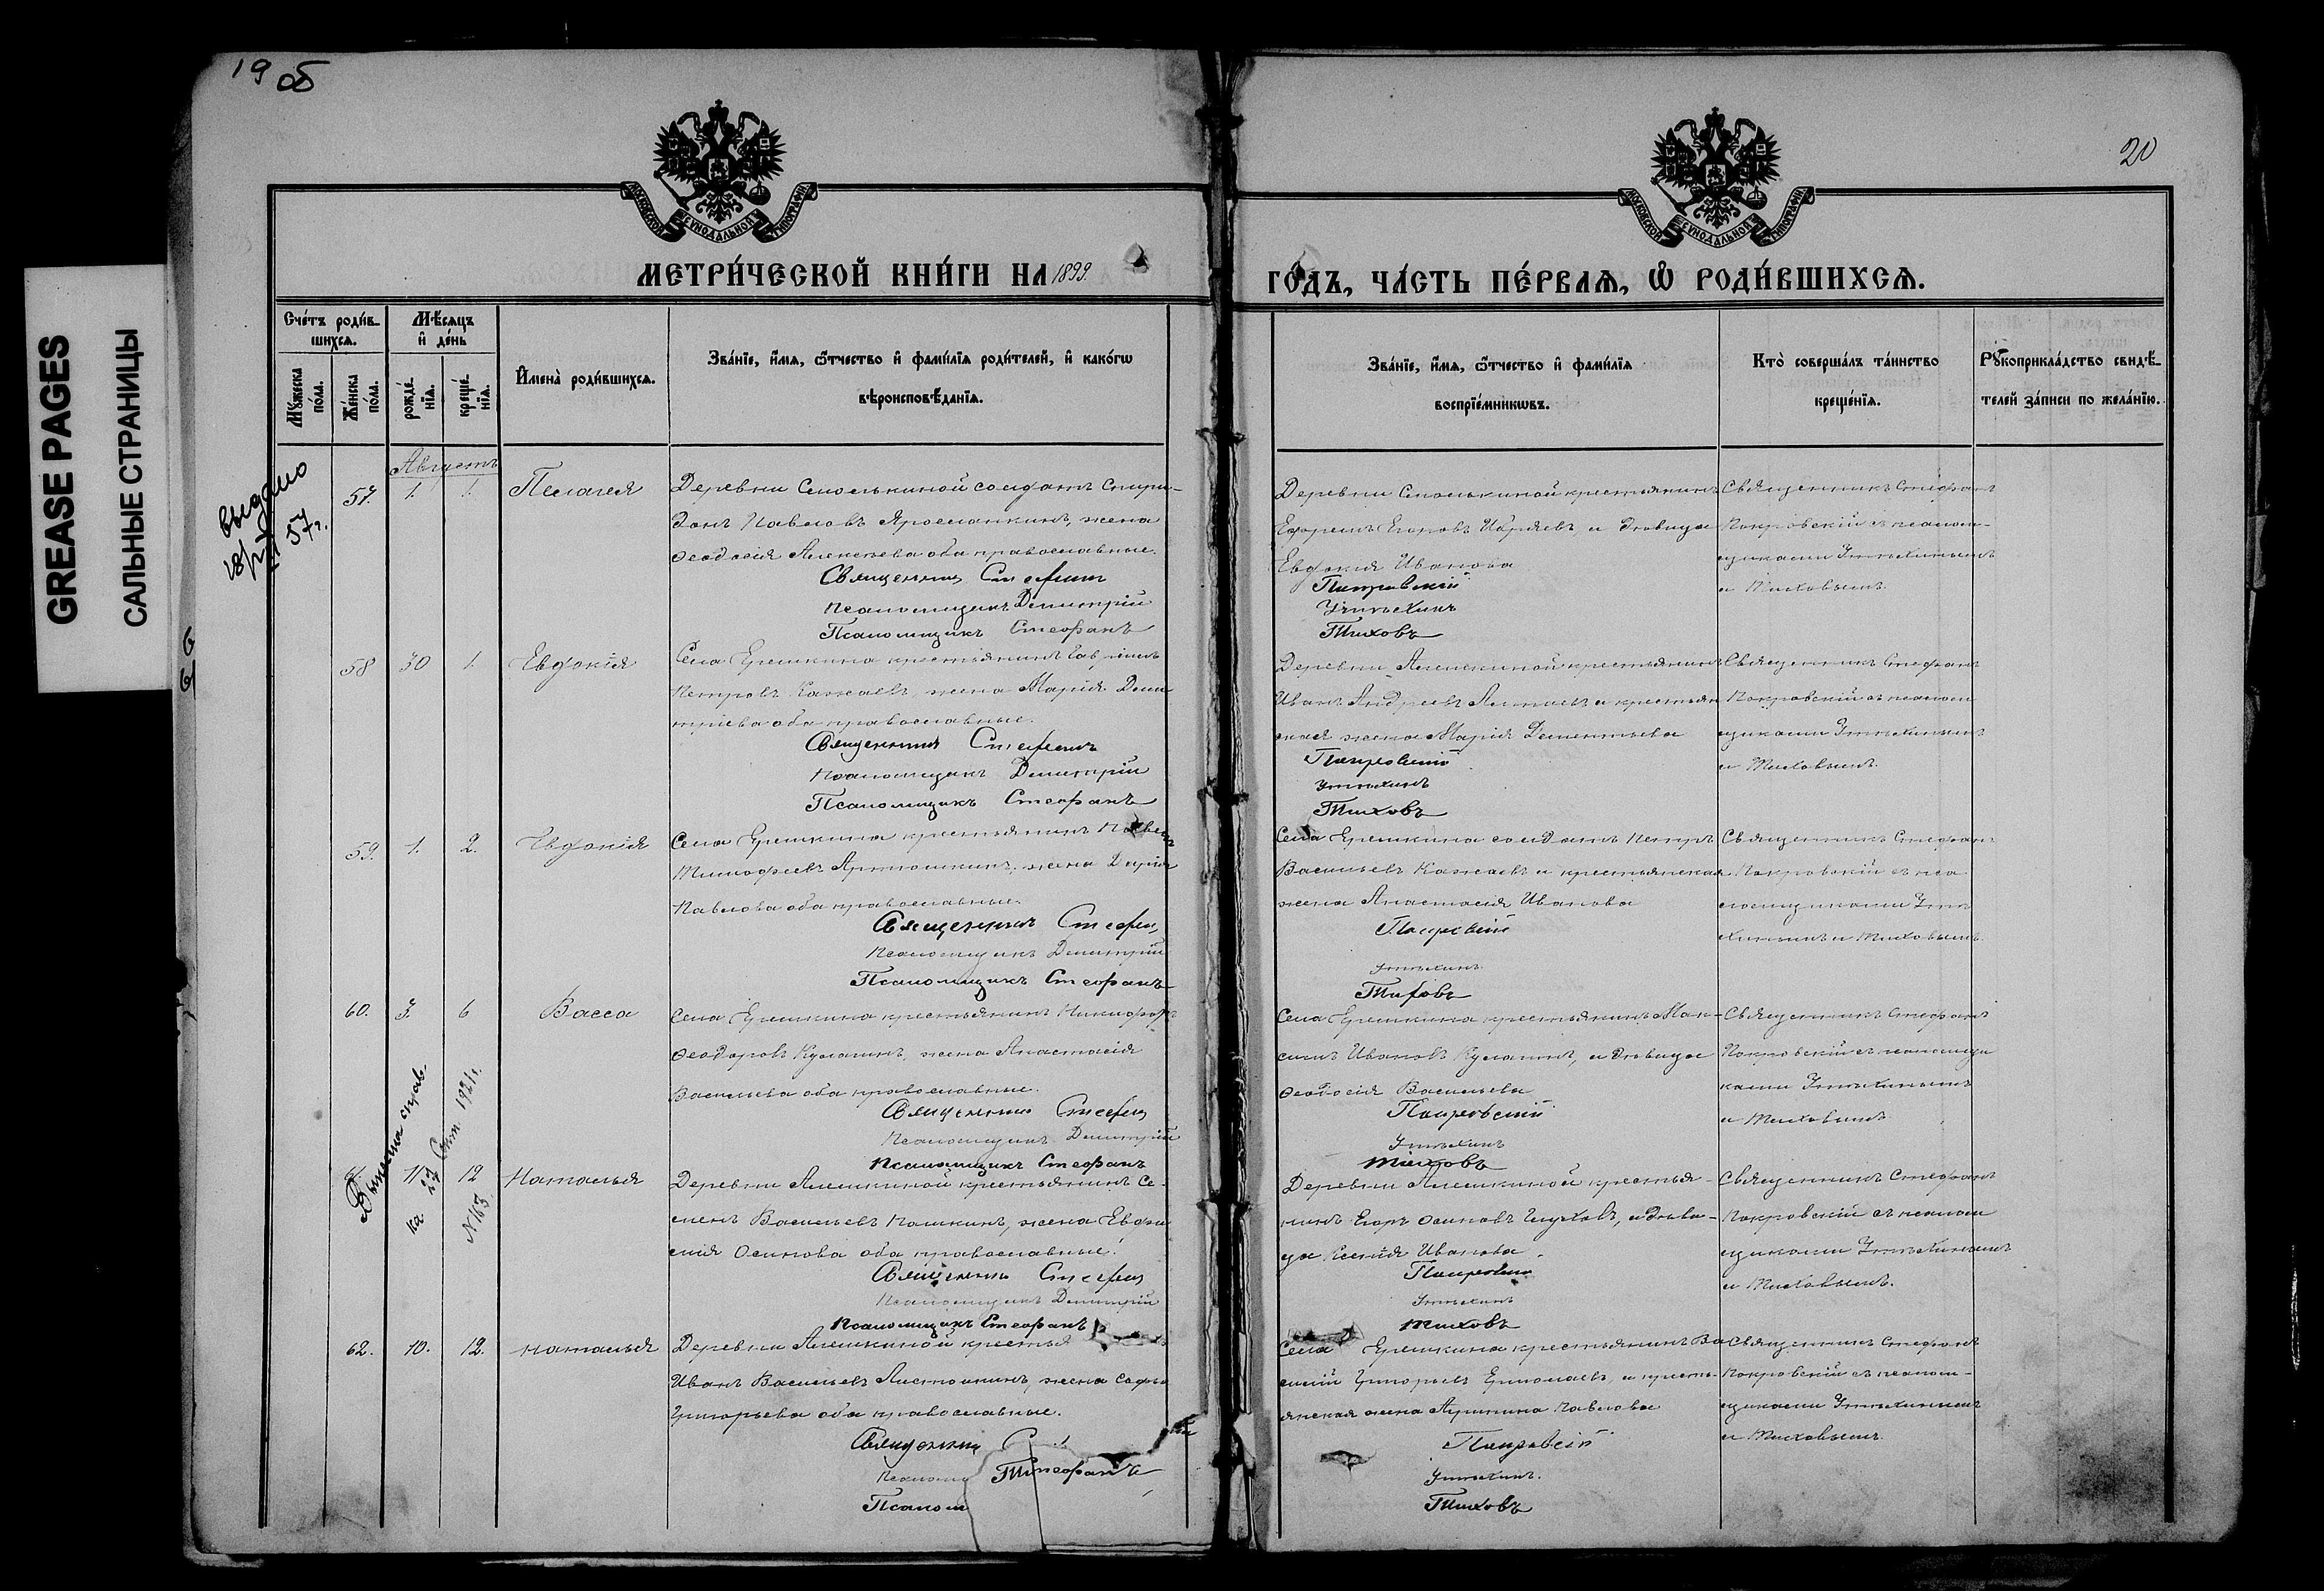 19 об
20
GREASE PAGES
САЛЬНЫЕ СТРАНИЦЫ
МОСКОВСКОЙ СѴНОДАЛЬНОЙ ТИПОГРАФІИ
МОСКОВСКОЙ СѴНОДАЛЬНОЙ ТИПОГРАФІИ
МЕТРИ́ЧЕСКОЙ КНИ́ГИ НА 1899
ГО́ДЪ, ЧА́СТЬ ПЕ́РВАЯ, Ѡ РОДИ́ВШИХСЯ.
Сче́тъ роди́в-
шихся.
Му́жеска по́ла.
Же́нска по́ла.
Мѣ́сяцъ
и де́нь
рожде́нїя.
креще́нїя.
И҆мена̀ роди́вшихся.
Зва́нїе, и҆́мя, ѻ҆́тчество и҆ фами́лїя роди́телей, и҆ како́гѡ
вѣроисповѣ́данїя.
Зва́нїе, и҆́мя, ѻ҆́тчество и҆ фами́лїя
воспрїе́мникѡвъ.
Кто̀ соверша́лъ та́инство
креще́нїя.
Рꙋкоприкла́дство свидѣ́-
телей за́писи по жела́нїю.
выдано
57г.
Августъ
57. 1. 1. Пелагея
Деревни Смолькиной солдатъ Спири-
донъ Павловъ Ярославкинъ, жена
Феодосія Алексѣева оба православные.
Священникъ Стефанъ
Псаломщикъ Димитрій
Псаломщикъ Стефанъ
Деревни Смолькиной крестьянинъ
Егоровъ и дѣвица
Евдокія Иванова
Покровскій
Утѣхинъ
Тиховъ
Священникъ Стефанъ
Покровскій съ псалом-
щиками Утѣхинымъ
и Тиховымъ.
58 30 1. Евдокія
Села Ерешкина крестьянинъ Гавріилъ
Петровъ Кажаевъ, жена Марія Дими
тріева оба православные.
Священникъ Стефанъ
Псаломщикъ Димитрій
Псаломщикъ Стефанъ
Деревни Алешкиной крестьянинъ
Иванъ Андреевъ и крестьян
ская жена Марія Дементьева
Покровскій
Утѣхинъ
Тиховъ
Священникъ Стефанъ
Покровскій съ псалом
щиками Утѣхинымъ
и Тиховымъ.
59. 1. 2. Евдокія
Села Ерешкина крестьянинъ Павелъ
Тимофеевъ Артюшкинъ, жена Дарія
Павлова оба православные.
Священникъ Стефан
Псаломщикъ Димитрій
Псаломщикъ Стефанъ
Села Ерешкина солдатъ Петръ
Васильевъ Кажаевъ и крестьянская
жена Анастасія Иванова
Покровскій
Утѣхинъ
Тиховъ
Священникъ Стефанъ
Покровскій съ пса
ломщиками Утѣ
хинымъ и Тиховымъ.
60. 3. 6 Васса
Села Ерешкина крестьянинъ Никифоръ
Феодоровъ Кулагинъ, жена Анастасія
Васильева оба православные.
Священникъ Стефан
Псаломщикъ Димитрій
Псаломщикъ Стефанъ
Села Ерешкина крестьянинъ Мак-
симъ Ивановъ Кулагинъ, и дѣвица
Феодосія Васильева
Покровскій
Утѣхинъ
Тиховъ
Священникъ Стефанъ
Покровскій съ псаломщи
ками Утѣхинымъ
и Тиховымъ.
Выписка справ-
ка 27 Сент. 1921г.
N 163
61. 11 12 Наталья
Деревни Алешкиной крестьянинъ Се-
менъ Васильевъ Пашкинъ, жена Евфи
мія Осипова оба православные.
Священникъ Стефан
Псаломщикъ Димитрій
Псаломщикъ Стефанъ
Деревни Алешкиной крестья-
нинъ Егоръ Осиповъ Глуховъ, и дѣви-
ца Ксенія Иванова.
Покровскій
Утѣхинъ
Тиховъ
Священникъ Стефанъ
Покровскій съ псалом
щиками Утѣхинымъ
и Тиховымъ.
62. 10. 12. Наталья
Деревни Алешкиной крестья
Иванъ Васильевъ жена Софья
Григорьева оба православные.
Священник
Псаломщ Стефанъ
Псалом
Села Ерешкина крестьянинъ Ва
силій Григорьевъ Ермолаевъ, и кресть-
янская жена Павлова
Покровскій
Утѣхинъ.
Тиховъ
Священникъ Стефанъ
Покровскій съ псалом-
щиками Утѣхинымъ
и Тиховымъ.